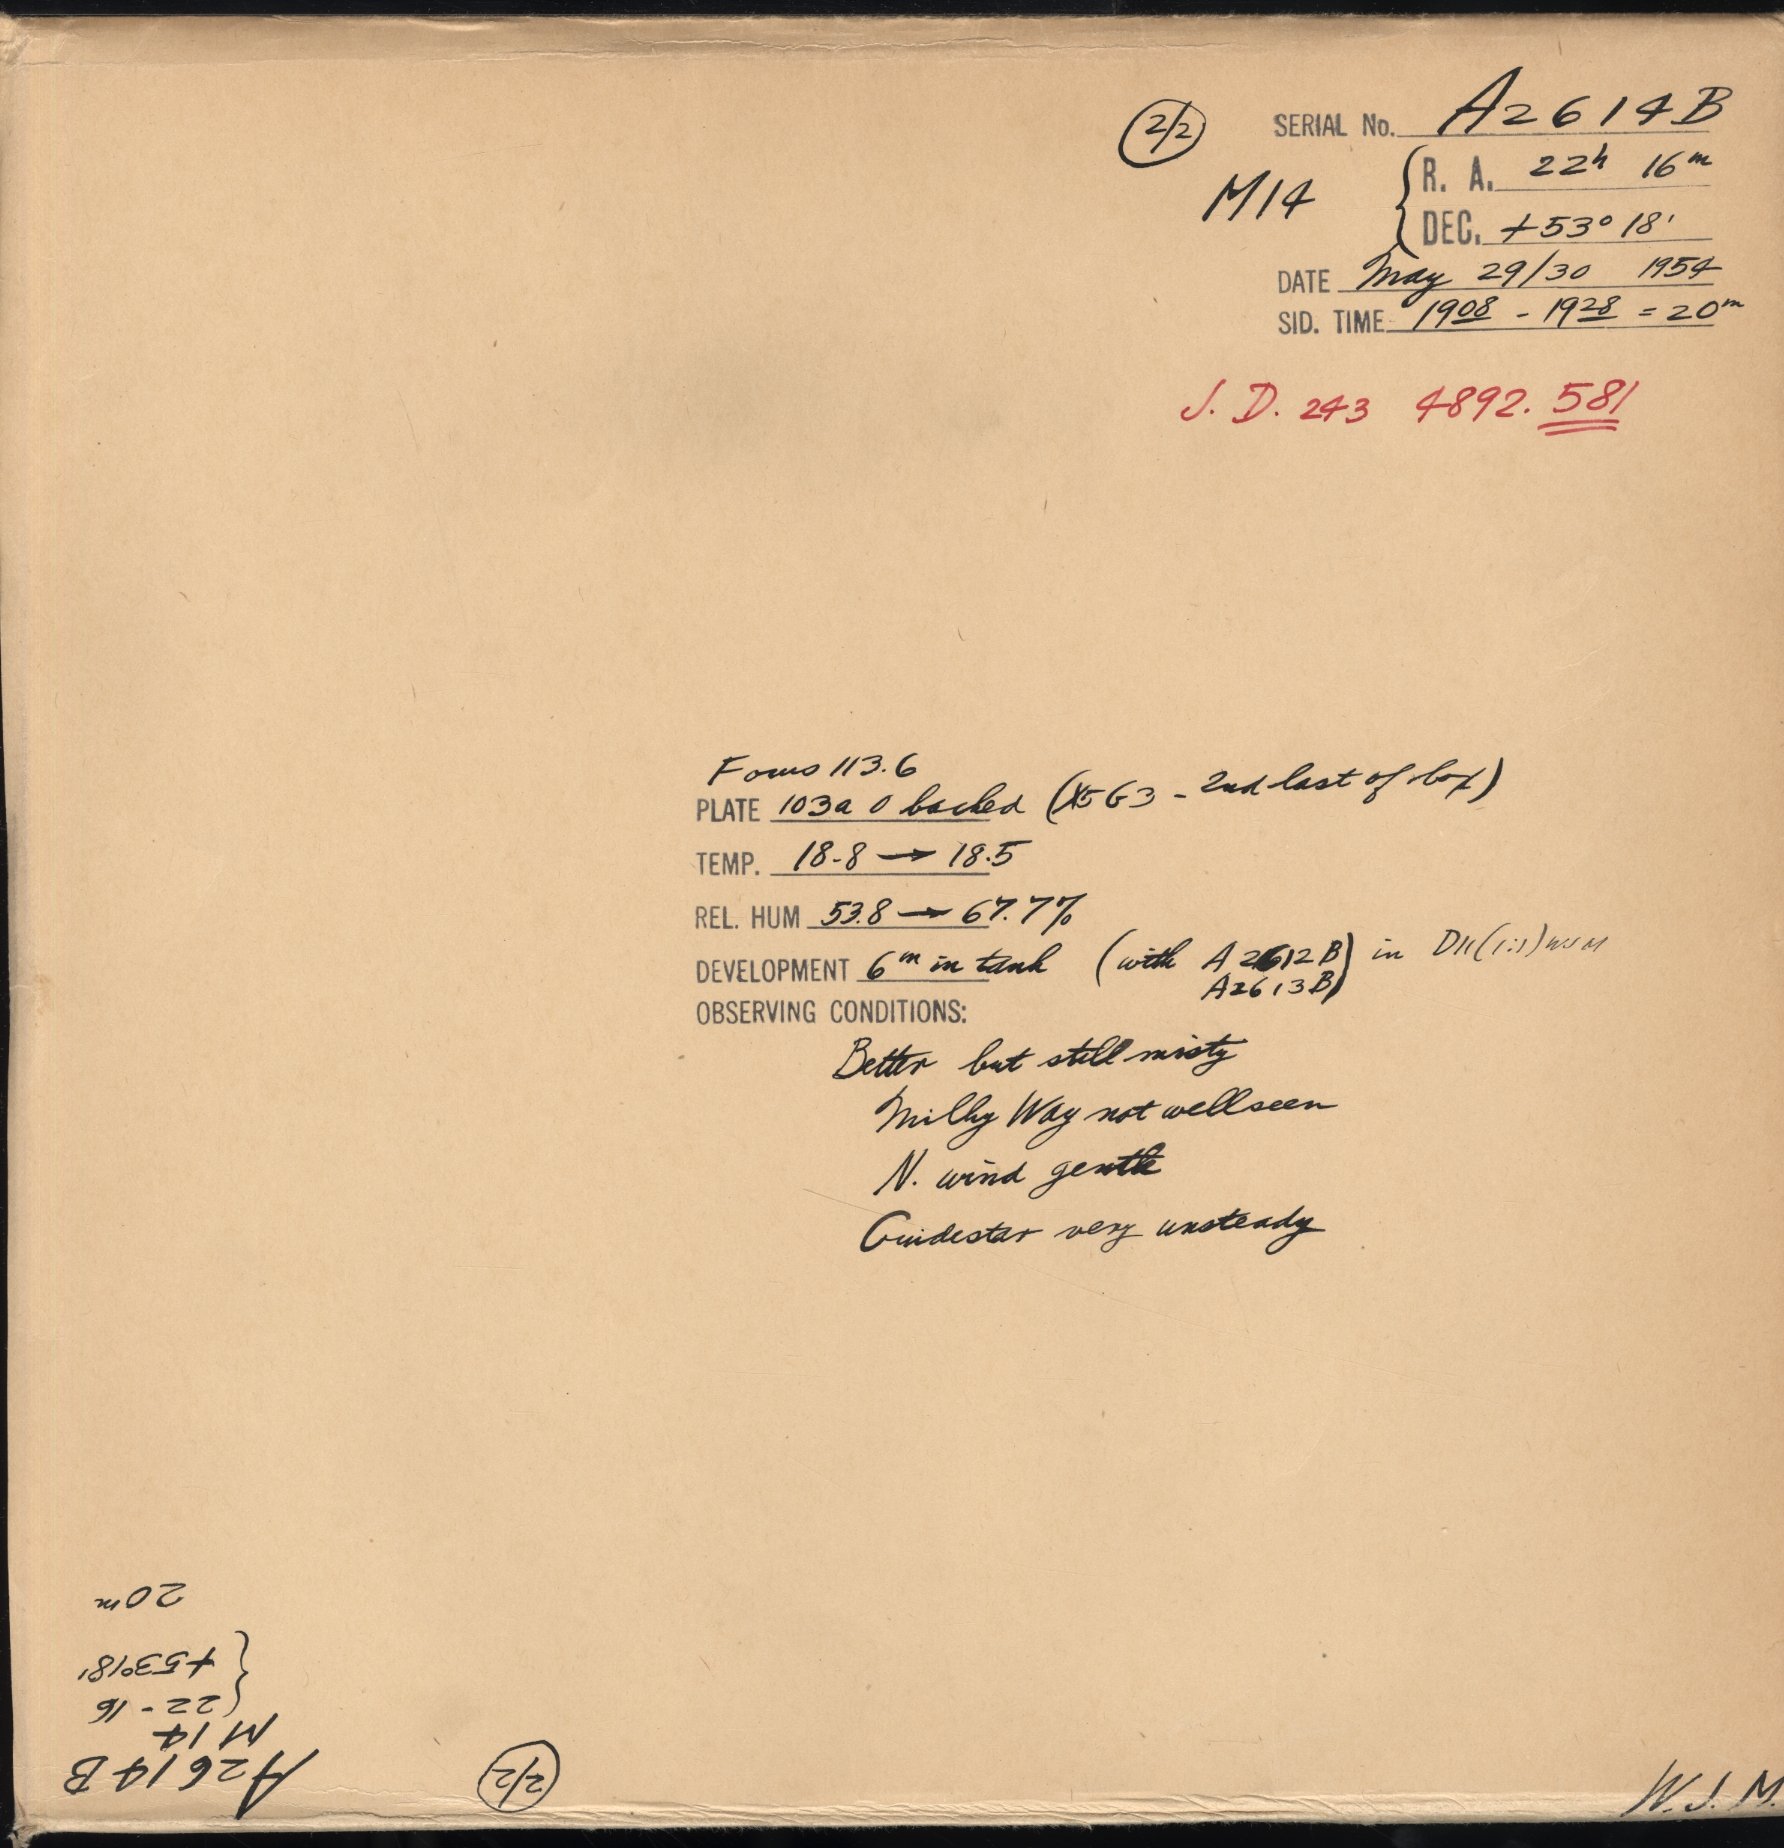 2/2
SERIAL No. A2614B
M14
R. A. 22h 16m
DEC. +53° 18'
DATE May 29/30 1954
SID. TIME 1908 - 1928 = 20m
J. D. 243 4892.581
Focus 113.6
PLATE 103a O backed (X5G3 - 2nd last of box)
TEMP. 18.8 → 18.5
REL. HUM 53.8 → 67.7%
DEVELOPMENT 6m in tank (with A2612B) in D11 (1:1) WJM
A2613B)
OBSERVING CONDITIONS:
Better but still misty
Milky Way not well seen
N. wind gentle
Guidestar very unsteady
A2614B
M14
22 - 16
+53°18'
20m
2/2
W. J. M.